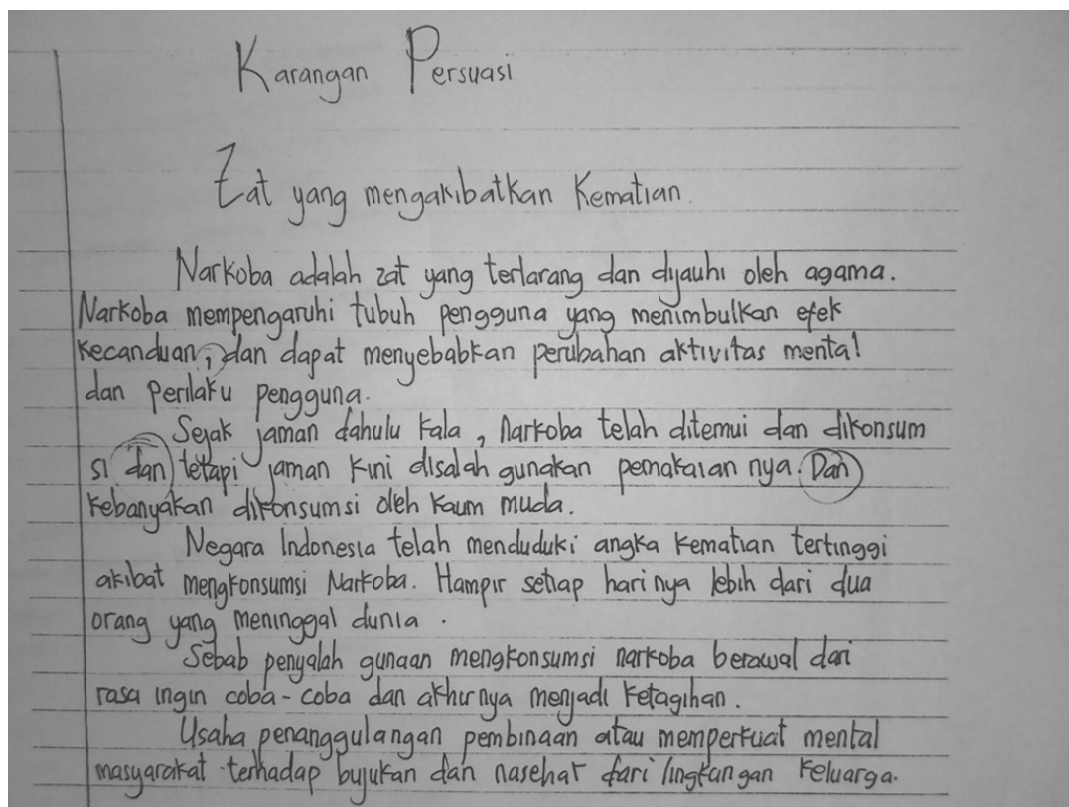 Karangan Persuasi
Zat yang mengakibatkan Kematian.
Narkoba adalah zat yang terlarang dan dijauhi oleh agama.
Narkoba mempengaruhi tubuh pengguna yang menimbulkan efek
kecanduan, dan dapat menyebabkan perubahan aktivitas mental
dan perilaku pengguna.
Sejak jaman dahulu kala, narkoba telah ditemui dan dikonsum
si dan tetapi jaman kini disalah gunakan pemakaian nya. Dan
kebanyakan dikonsumsi oleh kaum muda.
Negara Indonesia telah menduduki angka kematian tertinggi
akibat mengkonsumsi Narkoba. Hampir setiap hari nya lebih dari dua
orang yang meninggal dunia.
Sebab penyalah gunaan mengkonsumsi narkoba berawal dari
rasa ingin coba-coba dan akhirnya menjadi ketagihan.
Usaha penanggulangan pembinaan atau memperkuat mental
masyarakat terhadap bujukan dan nasehat dari lingkangan keluarga.